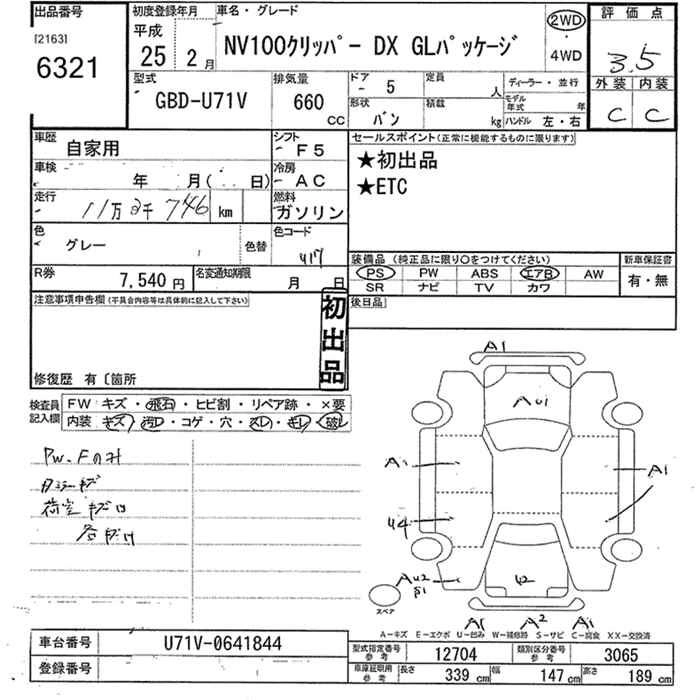 出品番号
[2163]
6321
初度登録年月
平成
25年 2月
車名・グレード
NV100クリッパー DX GLパッケージ
2WD
・
4WD
評価点
3.5
外装 内装
C C
型式
GBD-U71V
排気量
660
CC
ドア
- 5
定員
人
形状
バン
積載
kg
ディーラー・並行
モデル年式 年
ハンドル 左・右
車歴
自家用
シフト
F5
車検
年 月( 日)
冷房
AC
走行
11万2千746 km
燃料
ガソリン
色
グレー
色替
色コード
R券
7,540円
名変通知期限
月 日
セールスポイント(正常に機能するものに限ります)
★初出品
★ETC
装備品 (純正品に限り○をつけてください)
PS PW ABS エアB AW
SR ナビ TV カワ
新車保証書
有・無
注意事項申告欄(不具合内容等は具体的に記入して下さい)
初出品
修復歴 有〔箇所
後日品
検査員記入欄
FW キズ・飛石・ヒビ割・リペア跡・×要
内装 キズ・汚レ・コゲ・穴・スレ・キレ・破レ
PW.Fのみ
荷室キズ凹
A1
AU1
A1
A1
U4
AU2
S1
U2
スペア
A1 A2 A1
A-キズ E-エクボ U-凹み W-補修跡 S-サビ C-腐食 XX-交換済
車台番号
U71V-0641844
登録番号
型式指定番号
参考
12704
類別区分番号
参考
3065
車庫証明用
参考
長さ 339 cm 幅 147 cm 高さ 189 cm